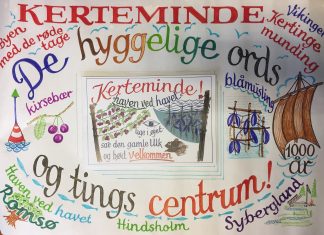 KERTEMINDE
Byen
med de røde
tage
Vikinger
Kertinge
munding
De hyggelige ords
kirsebær
blåmusling
Kerteminde!
haven ved havet
lige i øjet
sat den gamle Ulk
og bød Velkommen
1000
år
og tings centrum!
Haven ved havet
Romsø
Hindsholm
Sybergland